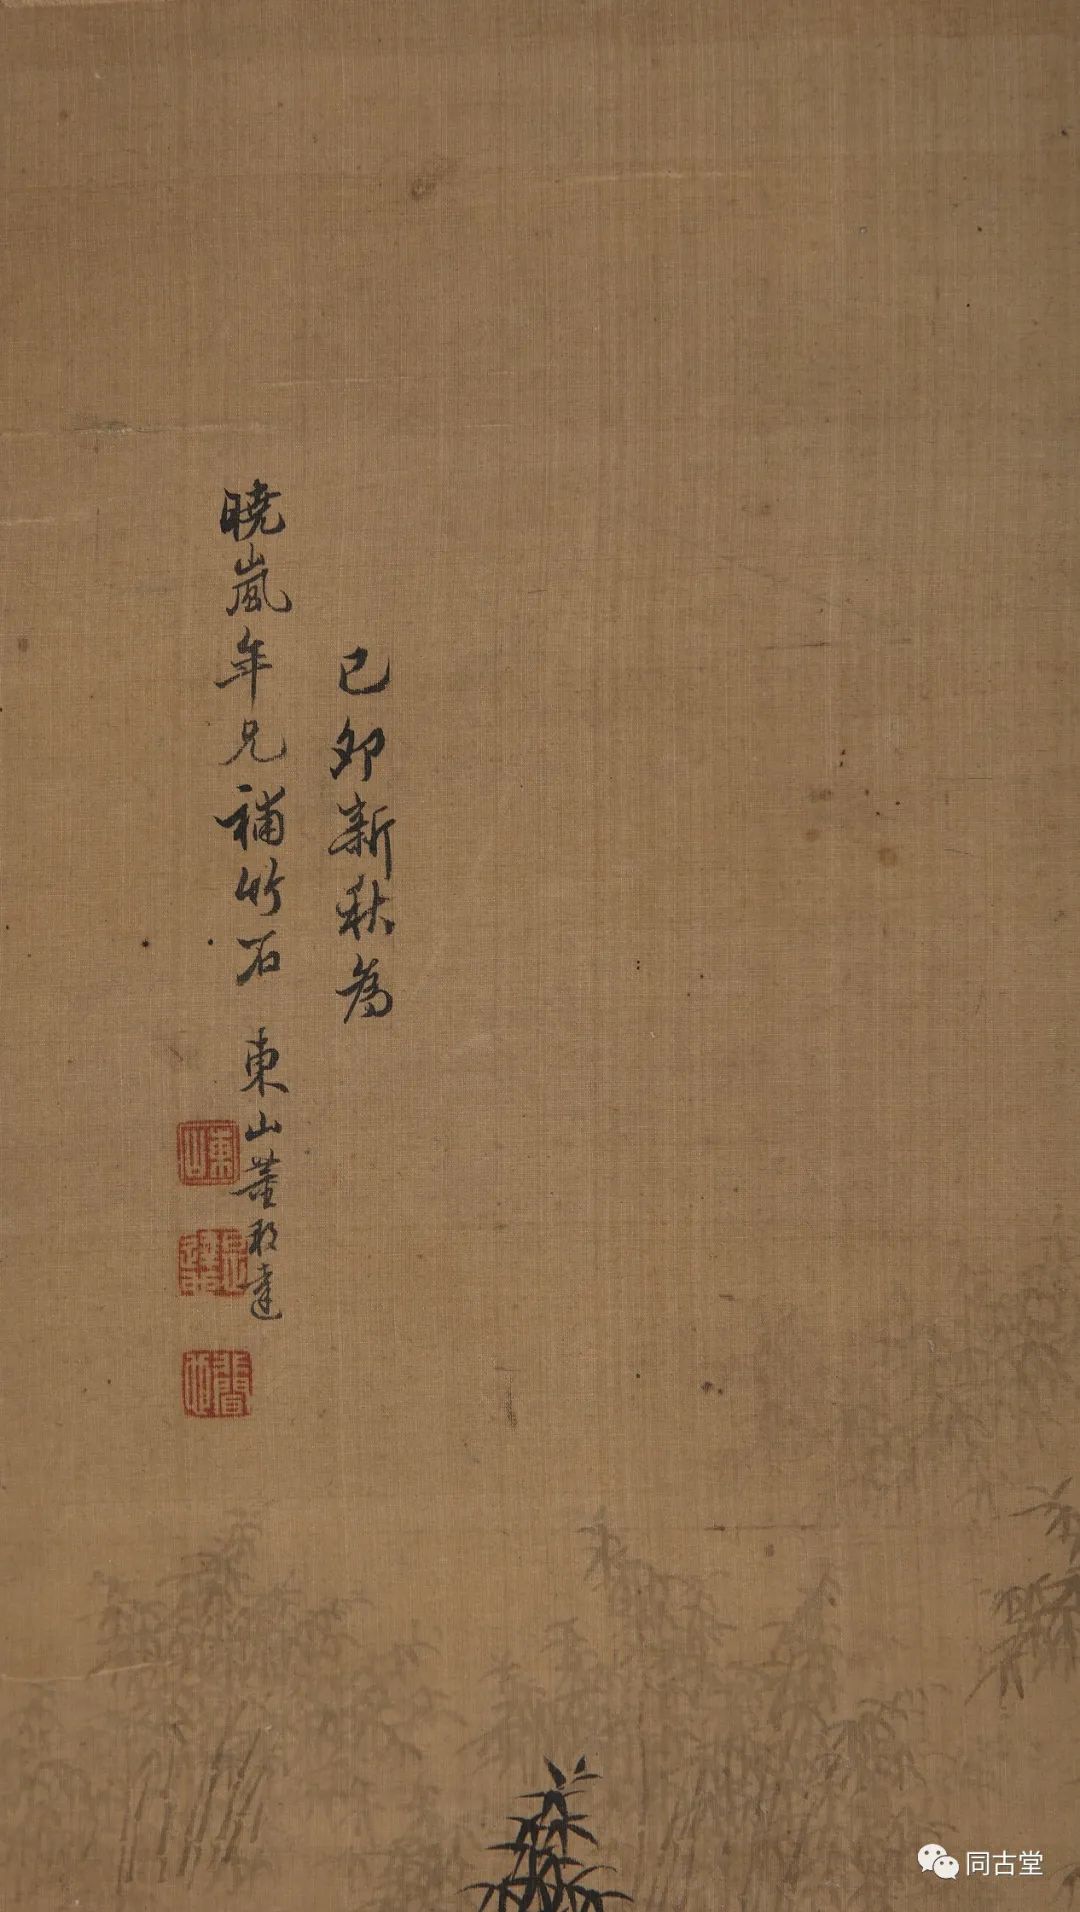 己卯新秋為
曉嵐年兄補竹石 東山董邦達
東山
同古堂